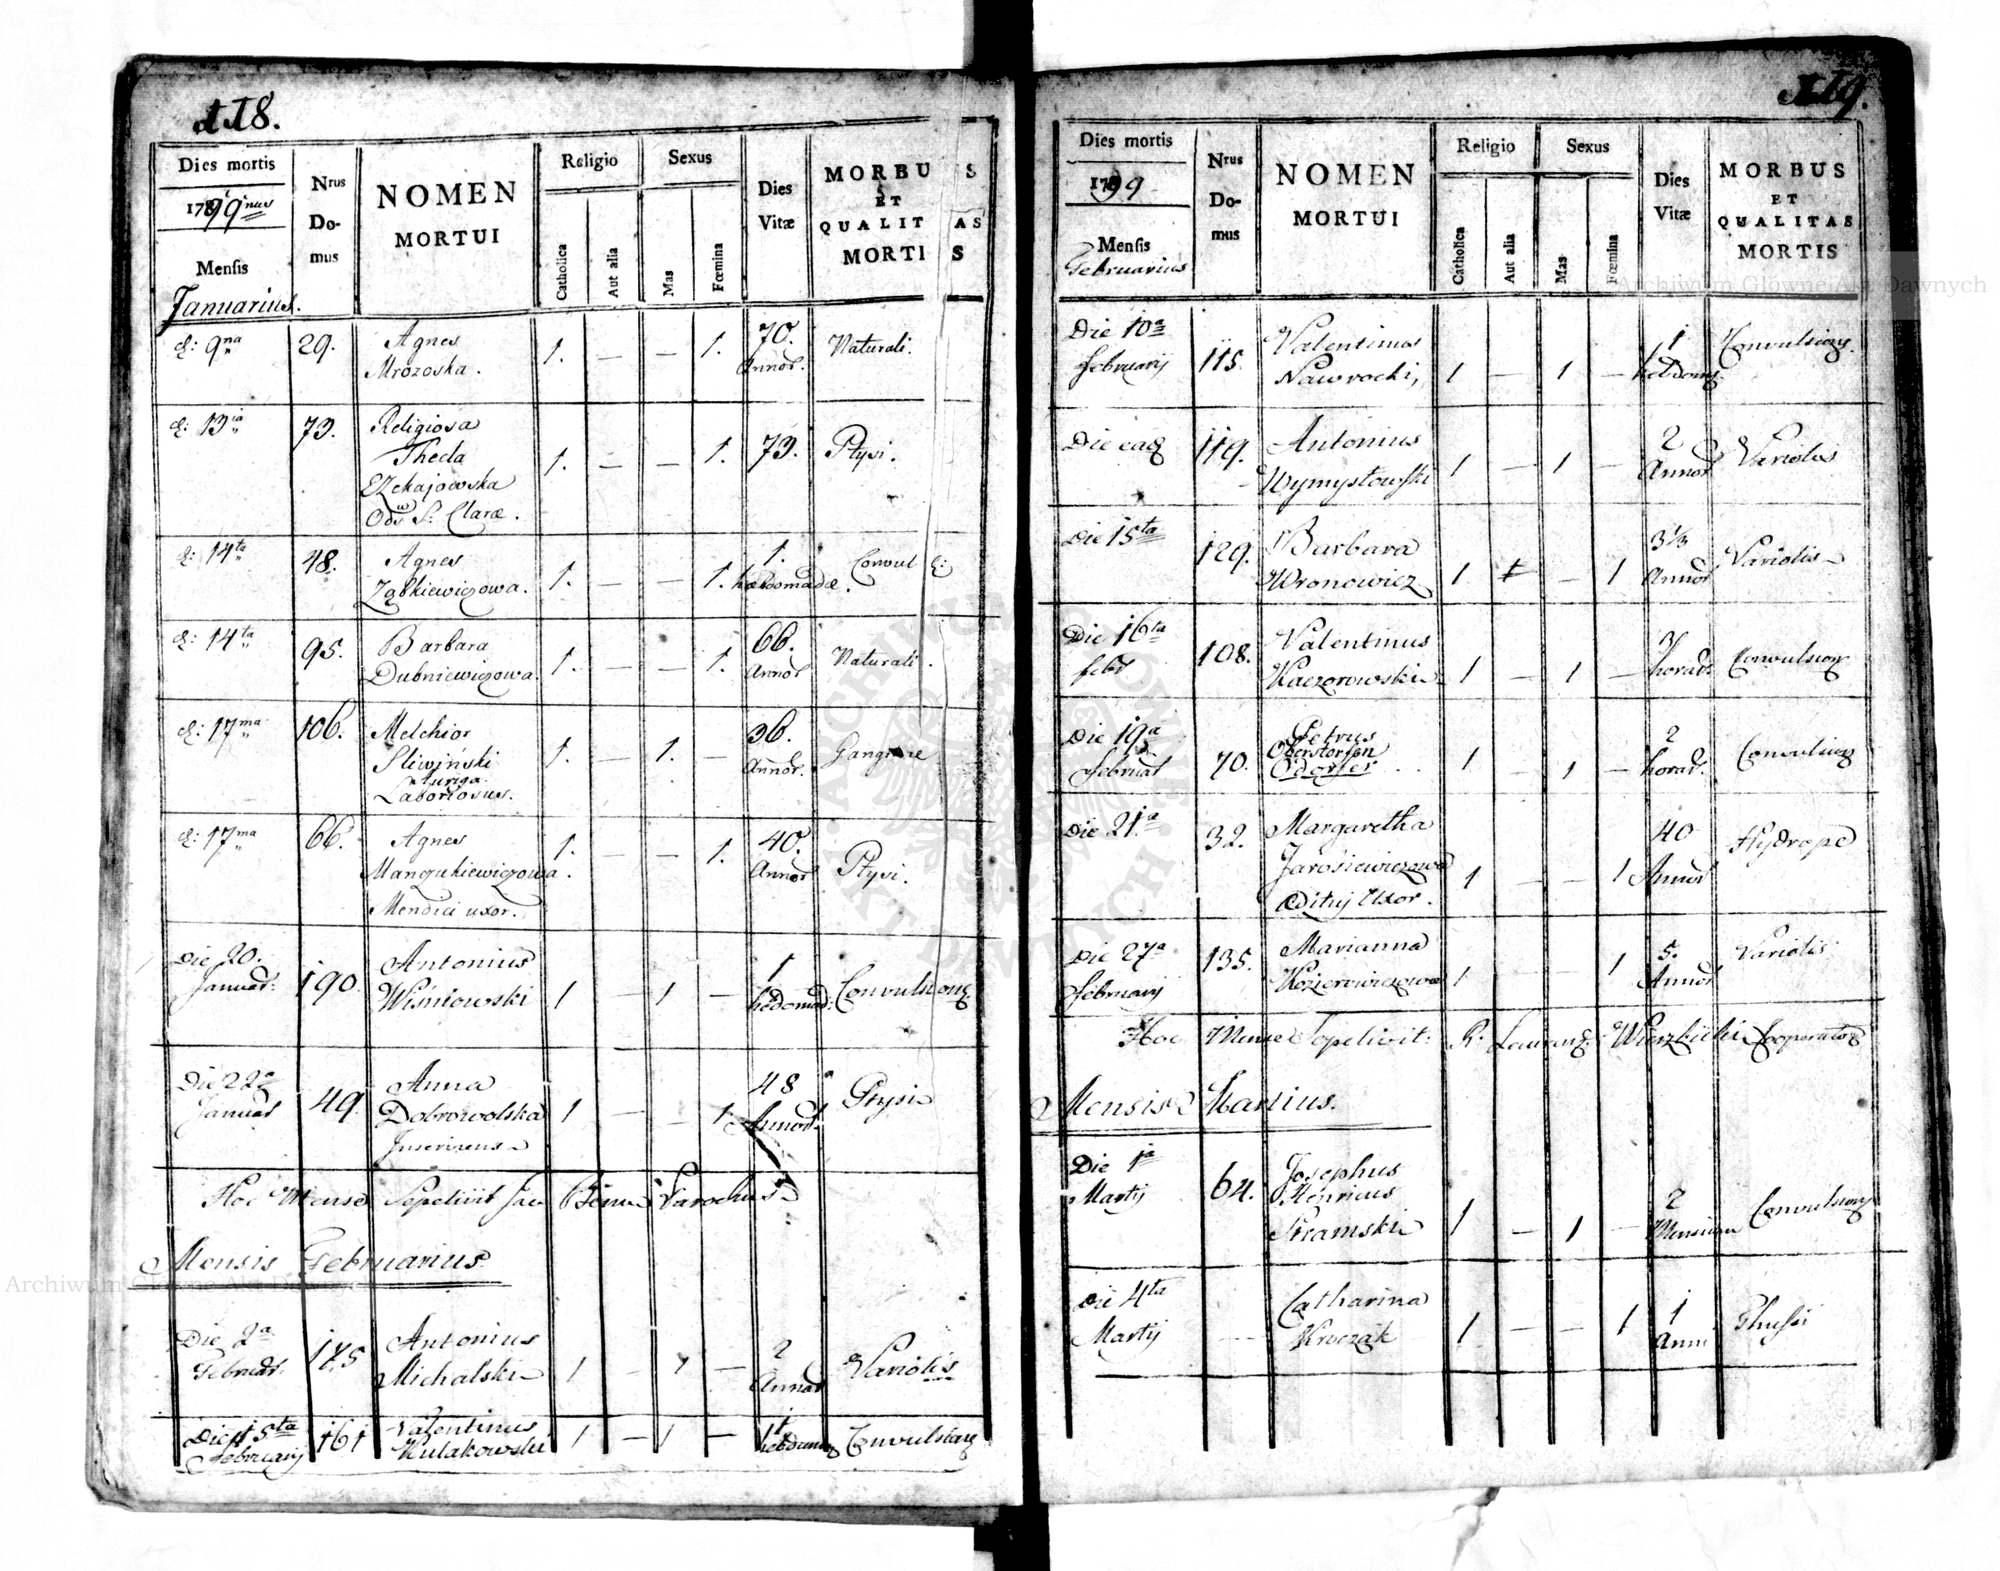 118.
Dies mortis
1799nus
Mensis
Januarius.
Nrus Domus
NOMEN MORTUI
Religio
Catholica
Aut alia
Sexus
Mas
Fœmina
Dies Vitæ
MORBUS ET QUALITAS MORTIS
d: 9na 29. Agnes Mrozoska. 1. — — 1. 70. Annor. Naturali.
d: 13ia 73. Religiosa Thecla Czekajowska Ods S: Claræ. 1. — — 1. 73. Ptysi.
d: 14ta 48. Agnes Ząbkiewiczowa. 1. — — 1. 1. hebdomadæ. Convul
d: 14ta 95. Barbara Dubniewiczowa. 1. — — 1. 66. Annor Naturali.
d: 17ma 106. Melchior Sliwiński Auriga Laboriosus. 1. — 1. — 36. Annor. Gangrene
d: 17ma 66. Agnes Manzukiewiczowa. Mendici uxor. 1. — — 1. 40. Annor Ptysi.
Die 20. Januar: 190. Antonius Wiśniowski 1 — 1 — 1 hebdomad: Convulsione
Die 22a Januar 49. Anna Dobrowolska 1 — — 1 48 Annor. Ptysi
Hoc Mense Sepelivit Parochus
Mensis Februarius
Die 2a Februar. 175 Antonius Michalski 1 — 1 — 2 Annor Variolis
Die 5ta Februarij 161 Valentinus Kulakowski 1 — 1 — 1 hebdom Convulsione
119.
Dies mortis
1799
Mensis
Februarius
Nrus Domus
NOMEN MORTUI
Religio
Catholica
Aut alia
Sexus
Mas
Fœmina
Dies Vitæ
MORBUS ET QUALITAS MORTIS
Die 10a februarij 115. Valentinus Nawrocki, 1 — 1 — 1 hebdom. Convulsione.
Die eadem 119. Antonius Wymysłowski 1 — 1 — 2 Annor Variolis
Die 15ta 129. Barbara Wronowicz 1 — 1 3 1/3 Annor Variolis
Die 16ta febr 108. Valentinus Kaczorowski 1 — 1 — 3 horar. Convulsione
Die 19a februar 70. Petrus Oberstorfen Odorfer 1 — 1 — 2 horar. Convulsione
Die 21a 32. Margaretha Jarosiewiczowa Æditui Uxor. 1 — — 1 40 Annor Hydrope
Die 27a februarij 135. Marianna Kozierowiczowa 1 1 5. Annor Variolis
Hoc Mense Sepelivit: R. Laurent: Wierzbicki Cooperator
Mensis Martius.
Die 1a Martij 64. Josephus Henricus Sramski 1 — 1 — 2 Mensium Convulsione
Die 4ta Martij Catharina Kroczak 1 — — 1 1 Anni Phtysi
Archiwum Główne Akt Dawnych
Archiwum Główne Akt Dawnych
ARCHIWUM GŁÓWNE AKT DAWNYCH